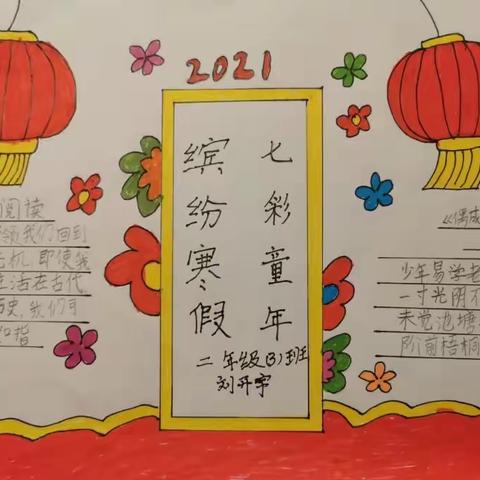 2021
七彩童年
缤纷寒假
二年级(3)班
刘开宇
阅读
领我们回到
机,即使我
生活在古代
历史,我们可
《偶成
少年易学老
一寸光阴不
未觉池塘
阶前梧桐